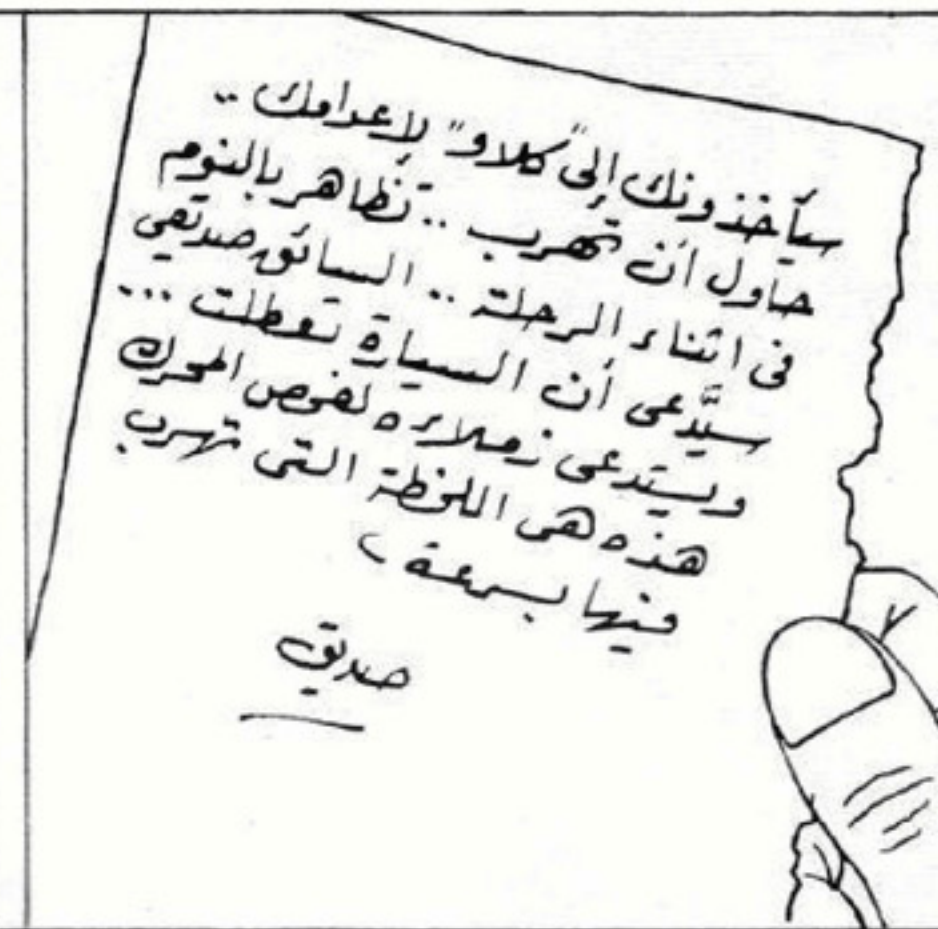 سيأخذونك إلى "كلاو" لإعدامك ..
حاول أن تهرب .. تظاهر بالنوم
فى اثناء الرحلة .. السائق صديقي
سيدَّعى أن السيارة تعطلت ...
ويستدعى زملاءه لفحص المحرك
هذه هى اللحظة التى تهرب
فيها بسرعة ،
صديق